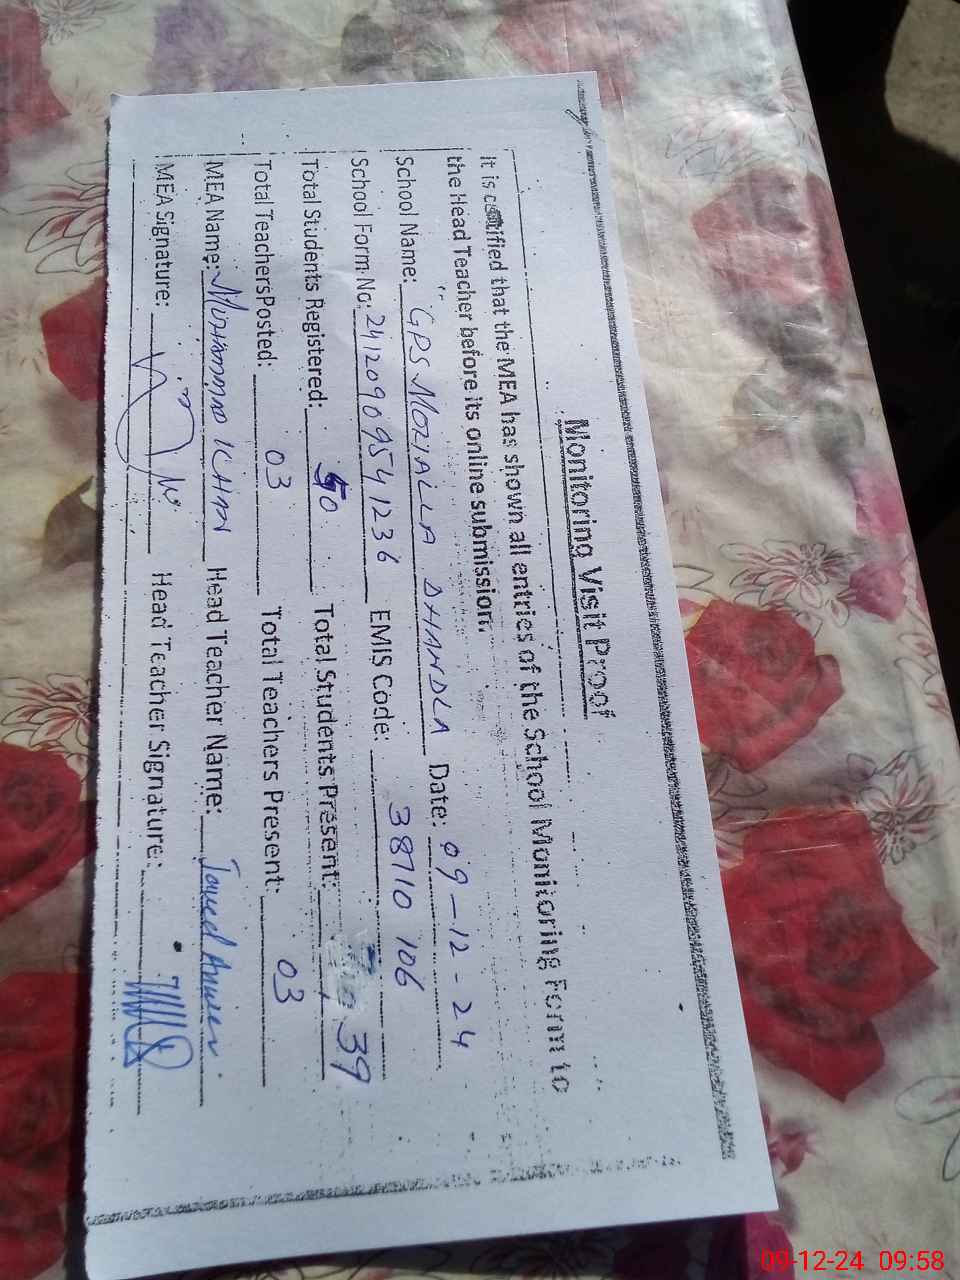 Monitoring Visit Proof
It is certified that the MEA has shown all entries of the School Monitoring Form to
the Head Teacher before its online submission.
School Name: GPS MORIALLA DHANDLA Date: 09-12-24
School Form No: 24120909541236 EMIS Code: 38710 106
Total Students Registered: 50 Total Students Present: 39
Total Teachers Posted: 03 Total Teachers Present: 03
MEA Name: MUHAMMAD ILHAN Head Teacher Name:
MEA Signature: Head Teacher Signature:
09-12-24 09:58